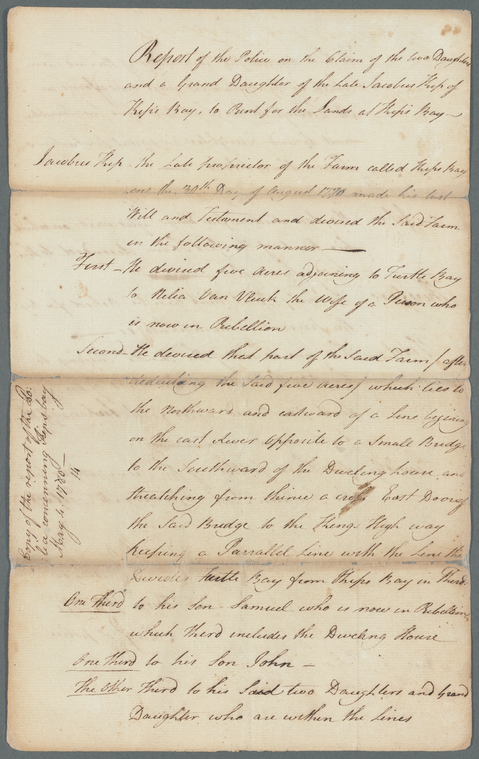 Report of the Police on the Claim of the two Daughters
and a Grand Daughter of the Late Jacobus Kip of
Kip's Bay, to Rent for the Lands at Kip's Bay
Jacobus Kip the Late Proprietor of the Farm called Kip's Bay
on the 30th Day of August 1770 made his last
Will and Testament and devised the Said Farm
in the following manner
First - He devised five Acres adjoining to Turtle Bay
to Nelia Van Vleck the Wife of a Person who
is now in Rebellion
Second - He devised that part of the Said Farm (after
deducting the Said five acres) which lies to
the Northward and eastward of a Line begining
on the east River opposite to a Small Bridge
to the Southward of the Dweling house and
streatching from thence a cross East Door of
the Said Bridge to the Kings High way
keeping a Parrallel Line with the Line th
Devides Turtle Bay from Kips Bay in Third
One Third to his Son Samuel who is now in Rebellion
which Third includes the Dweling House
One Third to his Son John -
The Other Third to his Said two Daughters and Grand
Daughter who are within the Lines
Copy of the report of the Po:
lice concerning Kipsbay
May 4, 1780
14